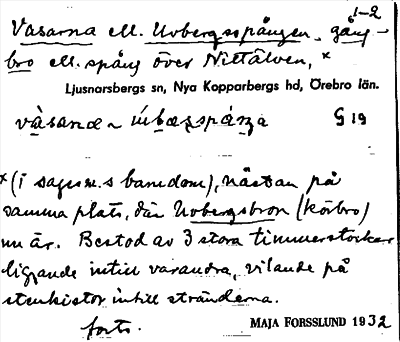 1-2
Vasarna ell. Uvbergsspången, gång-
bro ell. spång över Nittälven,ˣ
Ljusnarsbergs sn, Nya Kopparbergs hd, Örebro län.
G 19
ˣ(i sagesm.s barndom), nästan på
samma plats, där Uvbergsbron (körbro)
nu är. Bestod av 3 stora timmerstockar
liggande intill varandra, vilande på
stenkistor intill stränderna.
forts.
MAJA FORSSLUND 1932